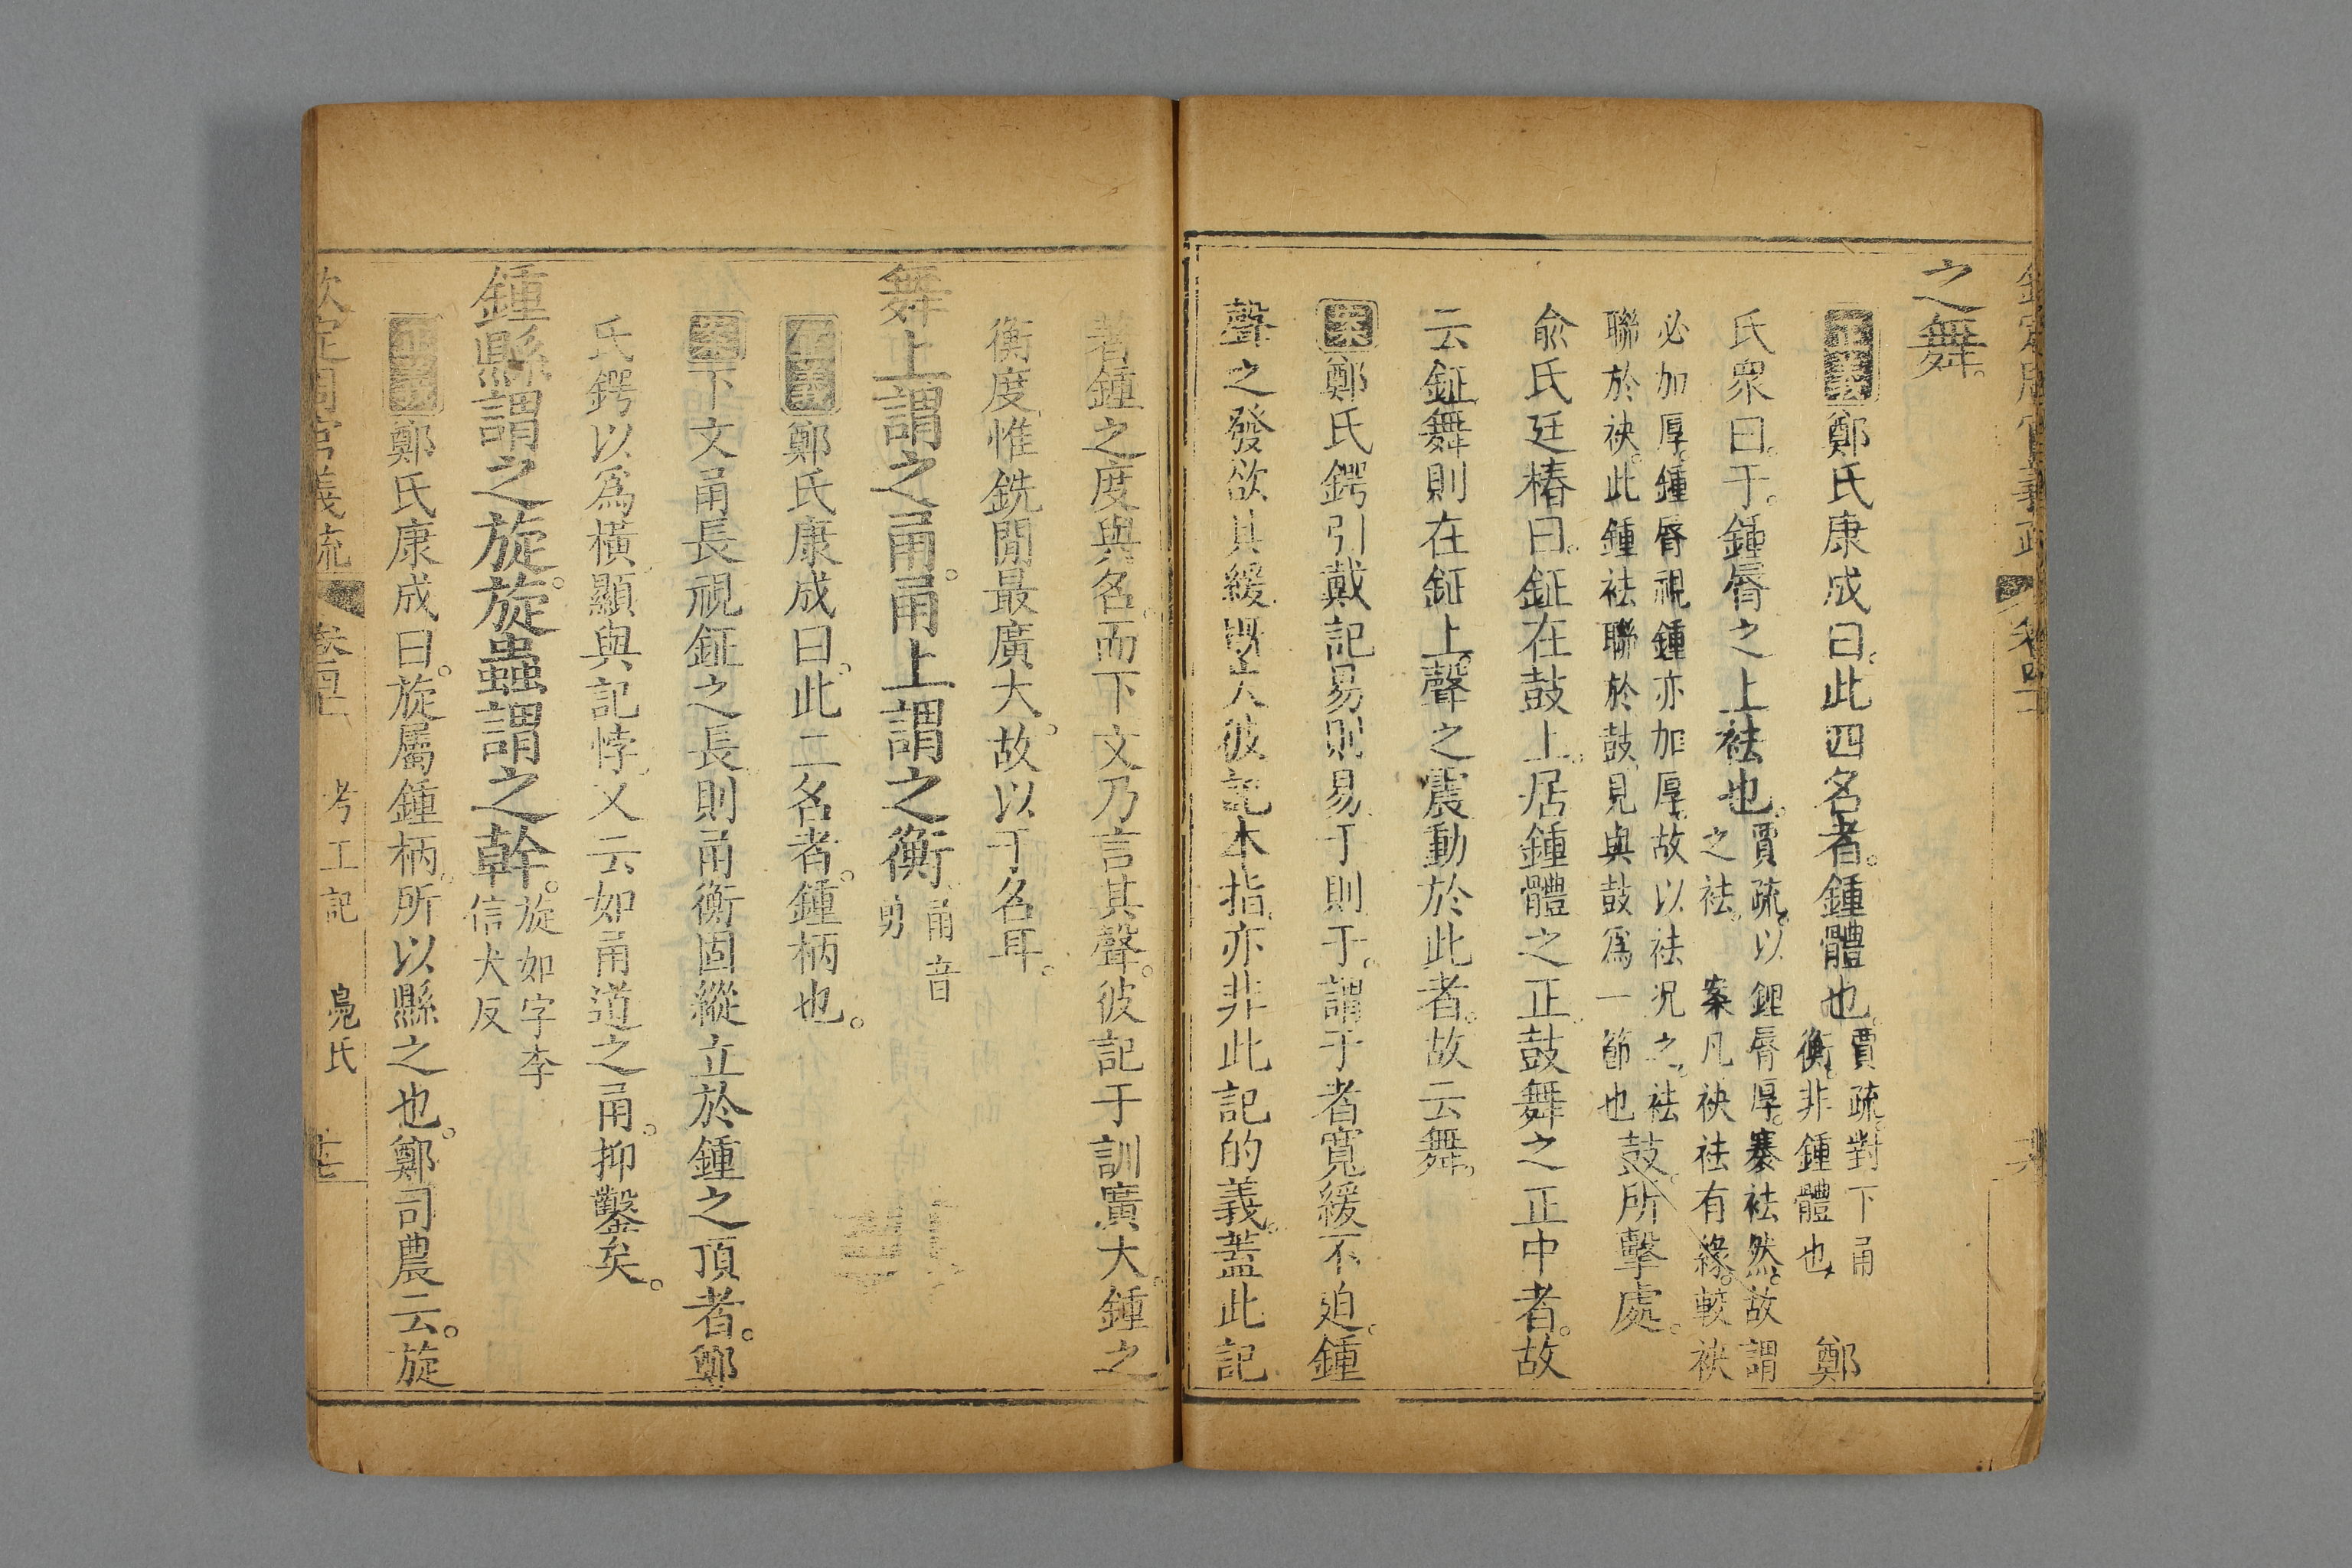 之舞。
正義鄭氏康成曰。此四名者。鍾體也。賈疏。對下甬衡。非鍾體也。鄭
氏衆曰。于。鍾脣之上袪也。賈疏。以鍾脣厚。褰袪然。故謂之袪。案凡袂袪有緣。較袂
必加厚。鍾脣視鍾亦加厚。故以袪況之。袪聯於袂。此鍾袪聯於鼓。見與鼓爲一節也鼓。所擊處。
俞氏廷椿曰。鉦在鼓上。居鍾體之正。鼓舞之正中者。故
云鉦。舞則在鉦上。聲之震動於此者。故云舞。
案鄭氏鍔引戴記易則易于則于。謂于者寬緩不迫。鍾
聲之發欲其緩彼記本指。亦非此記的義。蓋此記
著鍾之度與名。而下文乃言其聲。彼記于訓廣大。鍾之
衡度惟銑閒最廣大。故以于名耳。
舞上謂之甬。甬上謂之衡。甬音勇
正義鄭氏康成曰。此二名者。鍾柄也。
案下文甬長視鉦之長。則甬衡固縱立於鍾之頂者。鄭
氏鍔以爲橫。顯與記悖。又云如甬道之甬。抑鑿矣。
鍾縣謂之旋。旋蟲謂之幹。旋如字李信犬反
正義鄭氏康成曰。旋屬鍾柄。所以縣之也。鄭司農云。旋
欽定周官義疏 卷四十 考工記 鳧氏